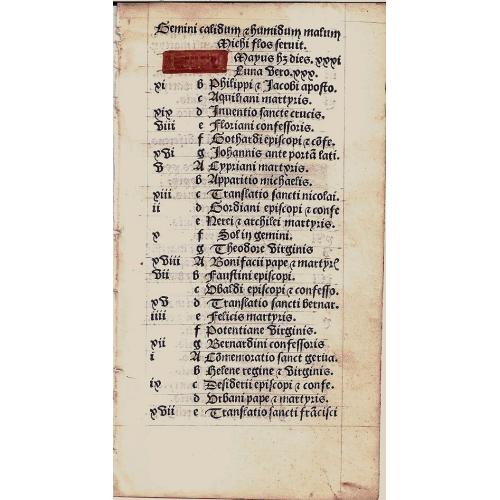 Gemini calidum ⁊ humidum malum
Michi flos seruit.
Mayus hȝ dies. xxxi
Luna vero. xxx.
xi b Philippi ⁊ Jacobi aposto.
c Aquiliani martyris.
xix d Inuentio sancte crucis.
viii e Floriani confessoris.
f Gothardi episcopi ⁊ cōfe.
xvi g Johannis ante portā lati.
v A Cypriani martyris.
b Apparitio michaelis.
xiii c Translatio sancti nicolai.
ii d Gordiani episcopi ⁊ confe
e Nerei ⁊ archilei martyris.
x f Sol in gemini.
g Theodore virginis
xviii A Bonifacii pape ⁊ martyrꝭ
vii b Faustini episcopi.
c Vbaldi episcopi ⁊ confesso.
xv d Translatio sancti bernar.
iiii e Felicis martyris.
f Potentiane virginis.
xii g Bernardini confessoris
i A Cōmemoratio sanct gerua.
b Helene regine ⁊ virginis.
ix c Desiderii episcopi ⁊ confe.
d Vrbani pape ⁊ martyris.
xvii e Translatio sancti frācisci